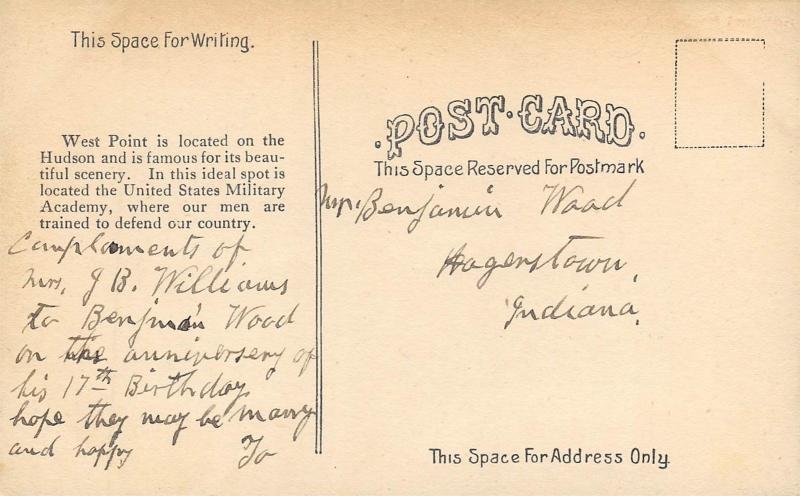 This Space For Writing.
West Point is located on the
Hudson and is famous for its beau-
tiful scenery. In this ideal spot is
located the United States Military
Academy, where our men are
trained to defend our country.
Complaments of
Mrs, J B. Williams
to Benjman Wood
on the anniversery of
his 17th Birthday
hope they may be many
and happy To
POST-CARD.
This Space Reserved For Postmark
Mr. Benjamin Wood
Hagerstown,
Indiana,
This Space For Address Only.